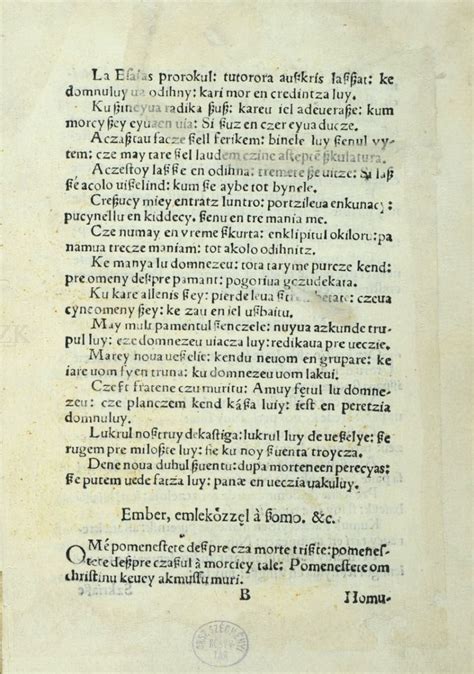 La Esaias prorokul: tutorora au skris lassat: ke
domnuluy ua odihny: kari mor en credintza luy.
Ku sineyua radika sus: kareu iel adeuerase: kum
morcy sey eyuaen uia: Si suz en czer eyua ducze.
Aczastau facze sell ferikem: binele luy senul vy-
tem: cze may tare sel laudem czine astepte skulatura.
Aczestoy lasse en odihna: tremete se uitze: Si lass
se acolo uiselind: kum se aybe tot bynele.
Cresucy miey entratz luntro: portzileua enkunacy:
pucynellu en kiddecy. senu en tre mania me.
Cze numay en vreme skurta: enklipitul okiloru: pa
namua trecze maniam: tot akolo odihnitz.
Ke manya lu domnezeu: tota tary me purcze kend:
pre omeny despre pamant: pogoriua gczudekata.
Ku kare allenis sey: pierdeleua betate: czeua
cyne omeny sey: ke zau en iel usbaitu.
May mult pamentul senczele: nuyua azkunde tru-
pul luy: eze domnezeu uiacza luy: redikaua pre ueczie.
Marey noua ueselie: kendu neuom en grupare: ke
iare uom sy en truna: ku domnezeu uom lakui.
Czest fratene czu muritu: Amuy fetul lu domne-
zeu: cze planczem kend kása luiy: iest en peretzia
domnuluy.
Lukrul nostruy de kastiga: lukrul luy de ueselye: se
rugem pre miloste luy: sie ku noy suenta troycza.
Dene noua duhul suentu: dupa morteneen perecyas:
se putem uede fatza luy: panæ en ueczia uakuluy.
Ember, emleközzel à somo. &c.
O Mé pomenestere despre cza morte triste: pomenes-
tere despre czasul à morciey tale: Pomenestere om
christinu keuey akmussu muri.
B Homu-